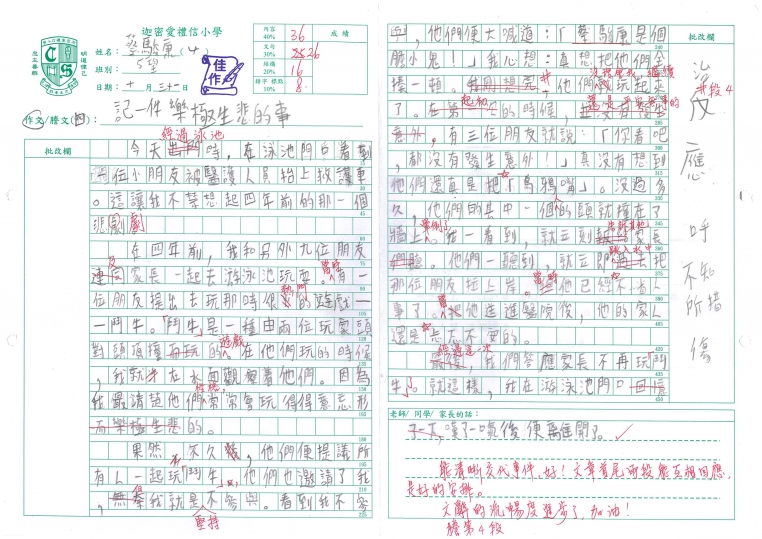 迦密愛禮信小學
姓名：蔡駿康(4)
班別：5望
日期：十月三十一日
內容 40% 36
文句 30% 26
結構 20% 16
錯字 標點 10% 8
成績
佳作
作文/謄文(四)：記一件樂極生悲的事
批改欄
經過泳池
今天出門時，在泳池門口看到
兩位小朋友被醫護人員抬上救護車
。這讓我不禁想起四年前的那一個
悲劇
在四年前，我和另外九位朋友
連同家長一起去游泳池玩耍。有一
位朋友提出去玩那時很熱門的遊戲—
—鬥牛。「鬥牛」是一種由兩位玩家頭
對頭頂撞而玩的遊戲。在他們玩的時候
，我就坐在水面觀看着他們。因為
我最清楚他們常常會玩得得意忘形
而樂極生悲的。
果然，不久後，他們便提議所
有人一起玩「鬥牛」，他們也邀請了我
，無奈我就是不參與。看到我不參
堅持
與，他們便大喊道：「蔡駿康是個
膽小鬼！」我心想：真想把他們全
揍一頓。我剛想完，他們就玩起來
了。在第一次的時候，並沒有發生
起初
意外，有三位朋友就說：「你看吧
，都沒有發生意外！」真沒有想到
他們還真是把「烏鴉嘴」。沒過多
久，他們的其中一個的頭就撞在了
牆上。我一看到，就立刻
們聽。他們一聽到，就立即過去把
跳入水中
那位朋友拉上岸。
當時
他已經不省人
事了。把他送進醫院後，他的家人
還是忐忑不安的。
經過這一次
最後，我們答應家長不再玩「鬥
牛」。就這樣，我在游泳池門口回憶
批改欄
#段4
反應
呼
不知所措
傷
老師/ 同學/ 家長的話：
了一下，嘆了一口氣後便離開了。
能清晰交代事件，好！文章首尾兩段能互相回應，
是好的安排。
文辭的流暢度進步了，加油！
謄第4段